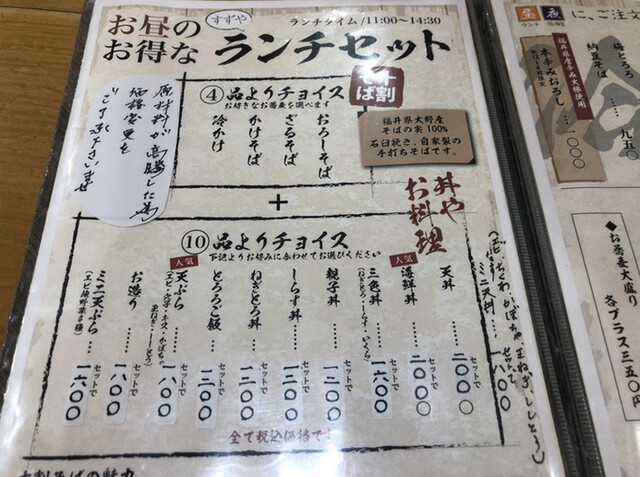 お昼の
お得な
すずや
ランチタイム/11:00〜14:30
ランチセット
原材料が高騰した為
価格変更を
ご了承下さいませ
④品よりチョイス
お好きなお蕎麦を選べます
おろしそば
ざるそば
かけそば
冷かけ
十割
そば
福井県大野産
そばの実100%
石臼挽き、自家製の
手打ちそばです。
+
丼や
お料理
⑩品よりチョイス
下記よりお好みに合わせてお選びください
天丼……セットで二〇〇〇
人気 海鮮丼……セットで二〇〇〇
三色丼……セットで一六〇〇
(ねぎとろ・しらす・いくら)
親子丼……セットで一二〇〇
しらす丼……セットで一二〇〇
ねぎとろ丼……セットで一二〇〇
とろろご飯……セットで一二〇〇
人気 天ぷら……セットで一八〇〇
お造り……セットで一八〇〇
ミニ天ぷら……セットで一六〇〇
ミニ天丼……セットで一八〇〇
全て税込価格です
昼 ランチ
夜
に、ご注文
梅とろろ
納豆そば……九五〇
福井県産辛み大根使用
本辛みおろし…一〇〇〇
◆お蕎麦大盛り
各プラス三五〇円